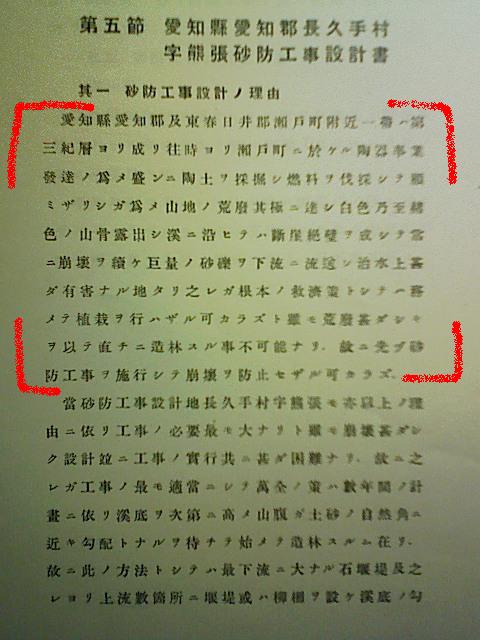 第五節　愛知縣愛知郡長久手村
字熊張砂防工事設計書
其一　砂防工事設計ノ理由
愛知縣愛知郡及東春日井郡瀨戸町附近一帶ハ第
三紀層ヨリ成リ往時ヨリ瀨戸町ニ於ケル陶器事業
發達ノ爲メ盛ンニ陶土ヲ採掘シ燃料ヲ伐採シテ顧
ミザリシガ爲メ山地ノ荒廢其極ニ達シ白色乃至赭
色ノ山骨露出シ溪ニ沿ヒテハ斷崖絕壁ヲ成シテ常
ニ崩壞ヲ續ケ巨量ノ砂礫ヲ下流ニ流送シ治水上甚
ダ有害ナル地タリ之レガ根本ノ救濟策トシテハ務
メテ植栽ヲ行ハザル可カラズト雖モ荒廢甚ダシキ
ヲ以テ直チニ造林スル事不可能ナリ、故ニ先ヅ砂
防工事ヲ施行シテ崩壞ヲ防止セザル可カラズ、
當砂防工事設計地長久手村字熊張モ亦以上ノ理
由ニ依リ工事ノ必要最モ大ナリト雖モ崩壞甚ダシ
ク設計竝ニ工事ノ實行共ニ甚ダ困難ナリ、故ニ之
レガ工事ノ最モ適當ニシテ萬全ノ策ハ數年間ノ計
畫ニ依リ溪底ヲ次第ニ高メ山腹ガ土砂ノ自然角ニ
近キ勾配トナルヲ待チテ始メテ造林スルニ在リ、
故ニ此ノ方法トシテハ最下流ニ大ナル石堰堤及之
レヨリ上流數箇所ニ堰堤或ハ柳柵ヲ設ケ溪底ノ勾